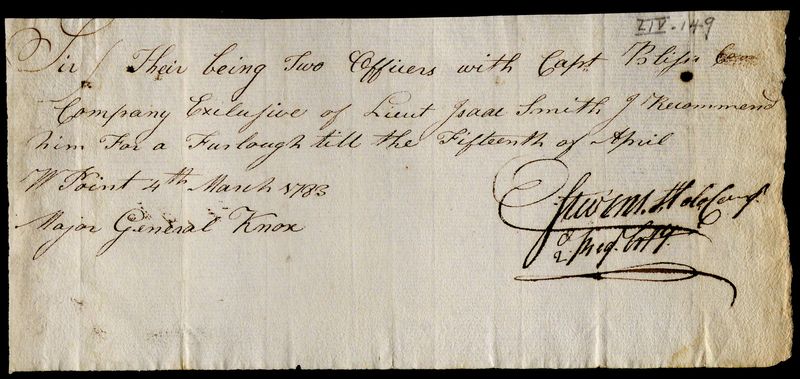 LIV-149
Sir / Their being Two Officers with Capt. Bliss
Company Exclusive of Lieut Isaac Smith I Recommend
him For a Furlough till the Fifteenth of April
W Point 4th March 1783
Major General Knox
Stevens
2